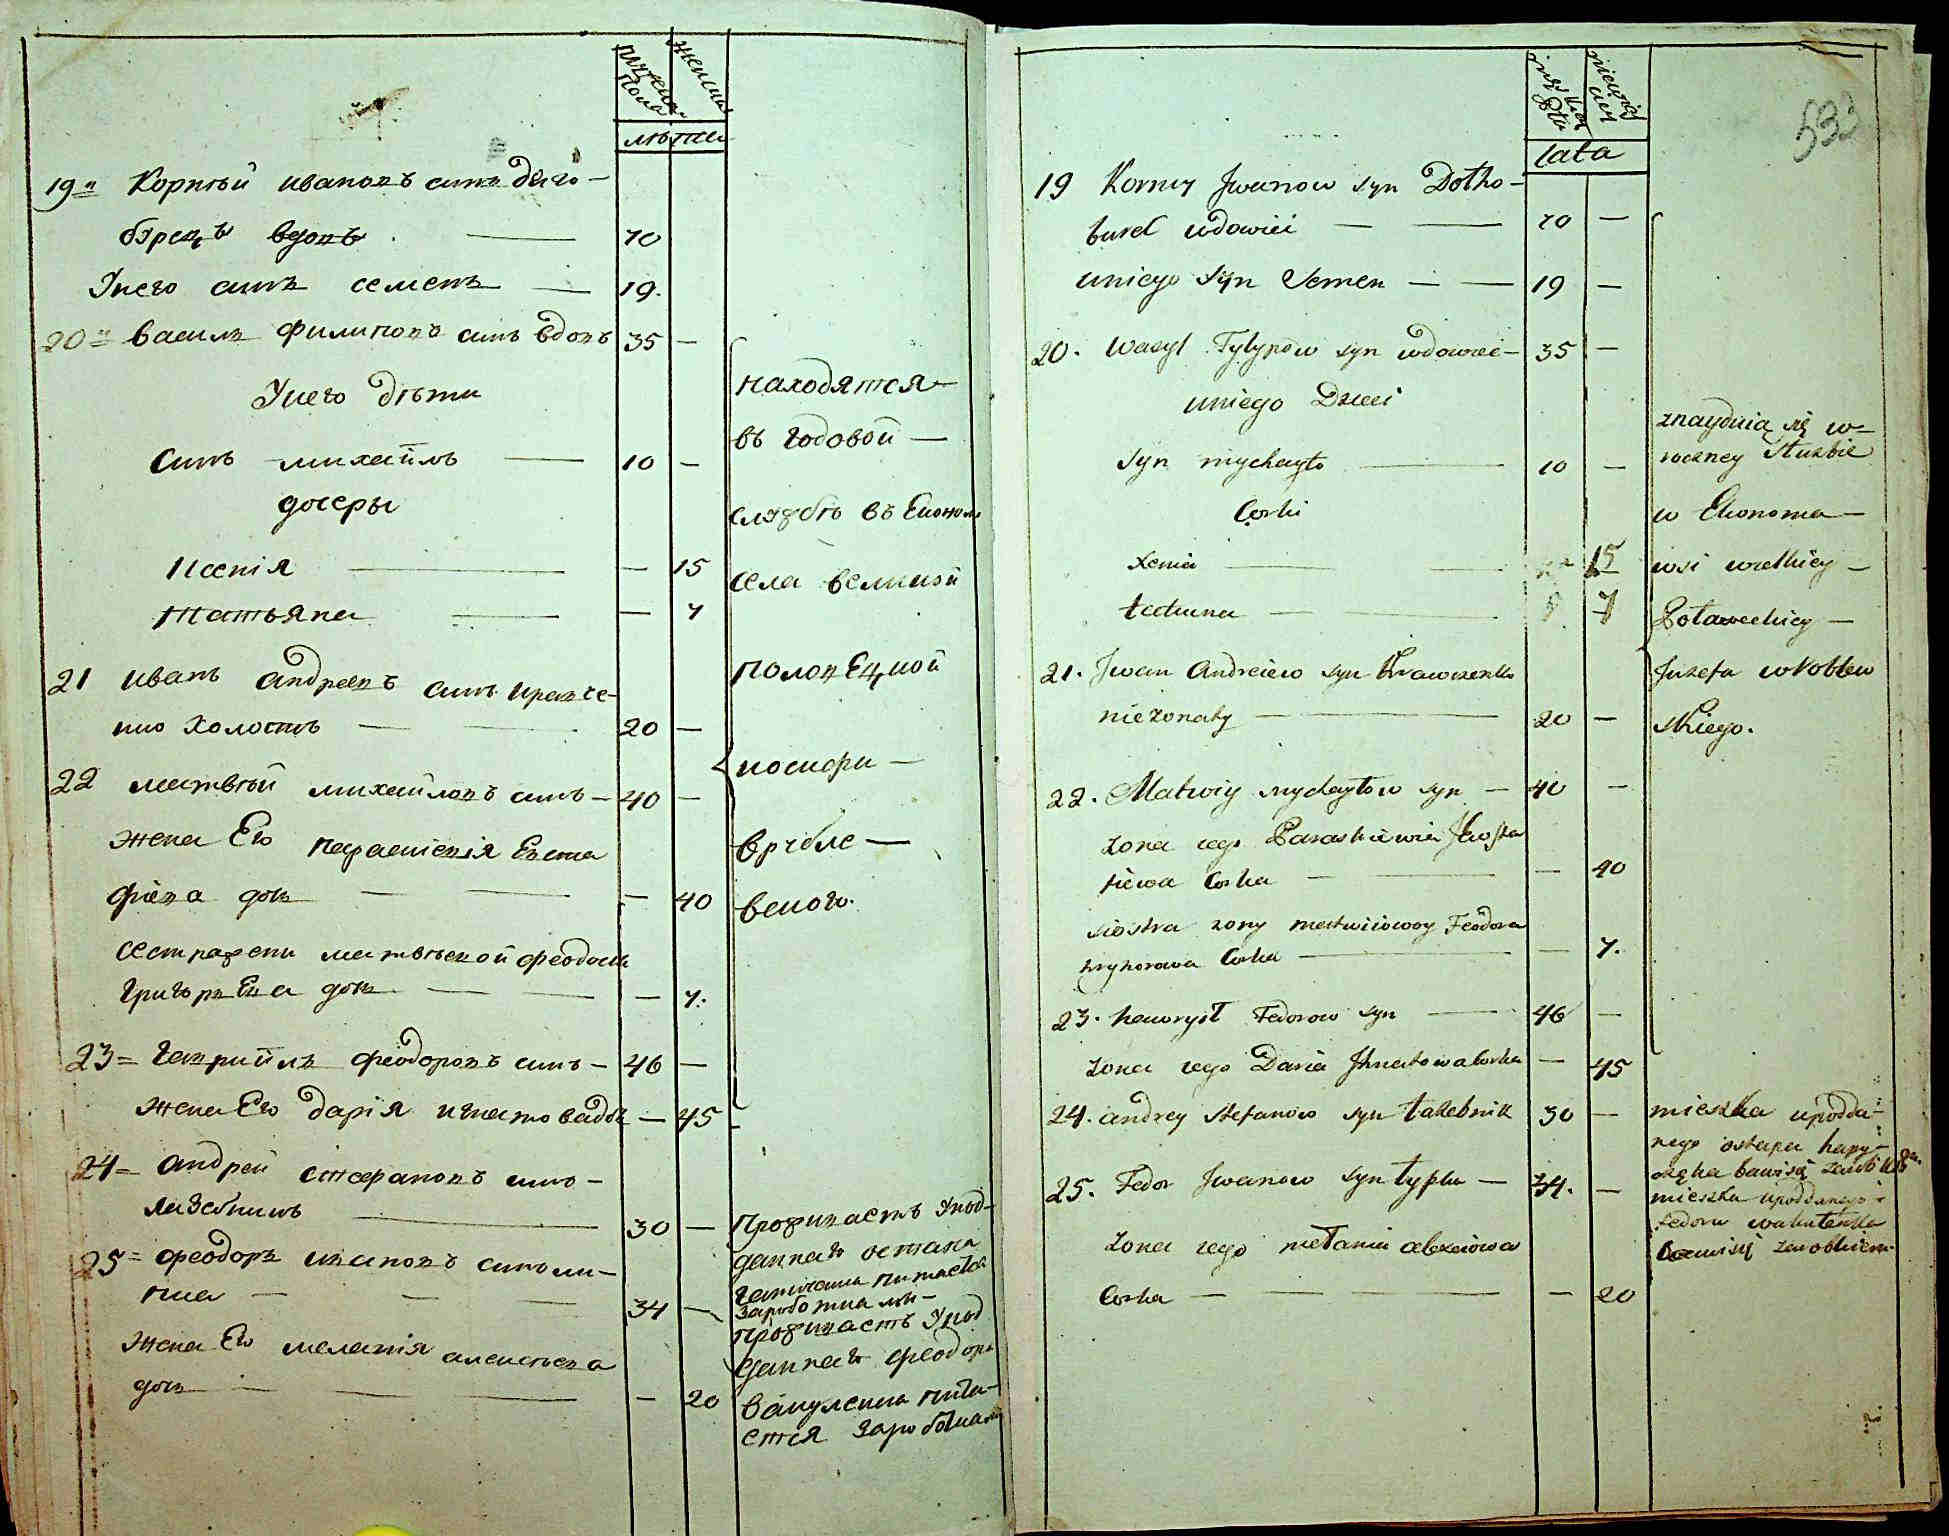 мужеска пола
женска
лѣта
19 Корнѣй ивановъ синъ Долго-
бурецъ вдовъ 70
Унего синъ семенъ 19.
20 василь филиповъ синъ вдовъ 35 —
Унего дѣти
Синъ михайлъ 10 —
дочеры
Ксенія — 15
Татьяна — 7
21 иванъ андреевъ синъ кравче-
нко холостъ 20 —
22 матвѣй михайловъ синъ — 40 —
жена Его параскевія Евста
фіева дочь — 40
сестра жени матвѣевой феодосія
Григорьева дочь — 7.
23 гавриилъ феодоровъ синъ — 46 —
жена Его дарія игнатова дочь — 45
24 андрей стефановъ синъ —
лазебникъ 30 —
25 феодоръ ивановъ синъ ли-
пка 34 —
жена Его меланія алексѣева
дочь — 20
находятся
въ годовой —
службѣ въ Економа
села великой
половЕцкой
иосифи —
врубле —
вского.
Проживаетъ Упод-
даннаго остапа
питается
зароботками —
проживаетъ Упод
даннаго феодора
вакуленка пита-
ется зароботками
533
lata
19 Korniy Jwanow syn Dołho-
buret wdowiec — 70 —
uniego syn Semen — 19 —
20. Wasyl Fylypow syn wdowiec — 35 —
uniego Dzieci
Syn mychayło 10 —
Corki
Xenia 15
tatiana 7
21. Jwan Andreiew syn Krawczenko
niezonaty 20 —
22. Matwiy mychayłow syn — 40 —
zona iego Paraskiewia Jewsta
fiewa Corka — 40
siostra zony matwiiowoy Feodora
hryhorowa Corka — 7.
23. hawryił Fedorow syn 46 —
zona iego Daria Jhnatowa Corka — 45
24. andrey Stefanow syn Łazebnik 30 —
25. Fedor Jwanow syn Łypka — 34. —
zona iego mełania alexiiowa
Corka — 20
znayduią się w-
roczney służbie
w Ekonoma —
wsi wielkiey —
Połowieckiey —
Juzefa wroblew
skiego.
mieszka upodda-
nego ostapa
mieszka upoddanego
fedora wakulenka
bawi się zarobkiem